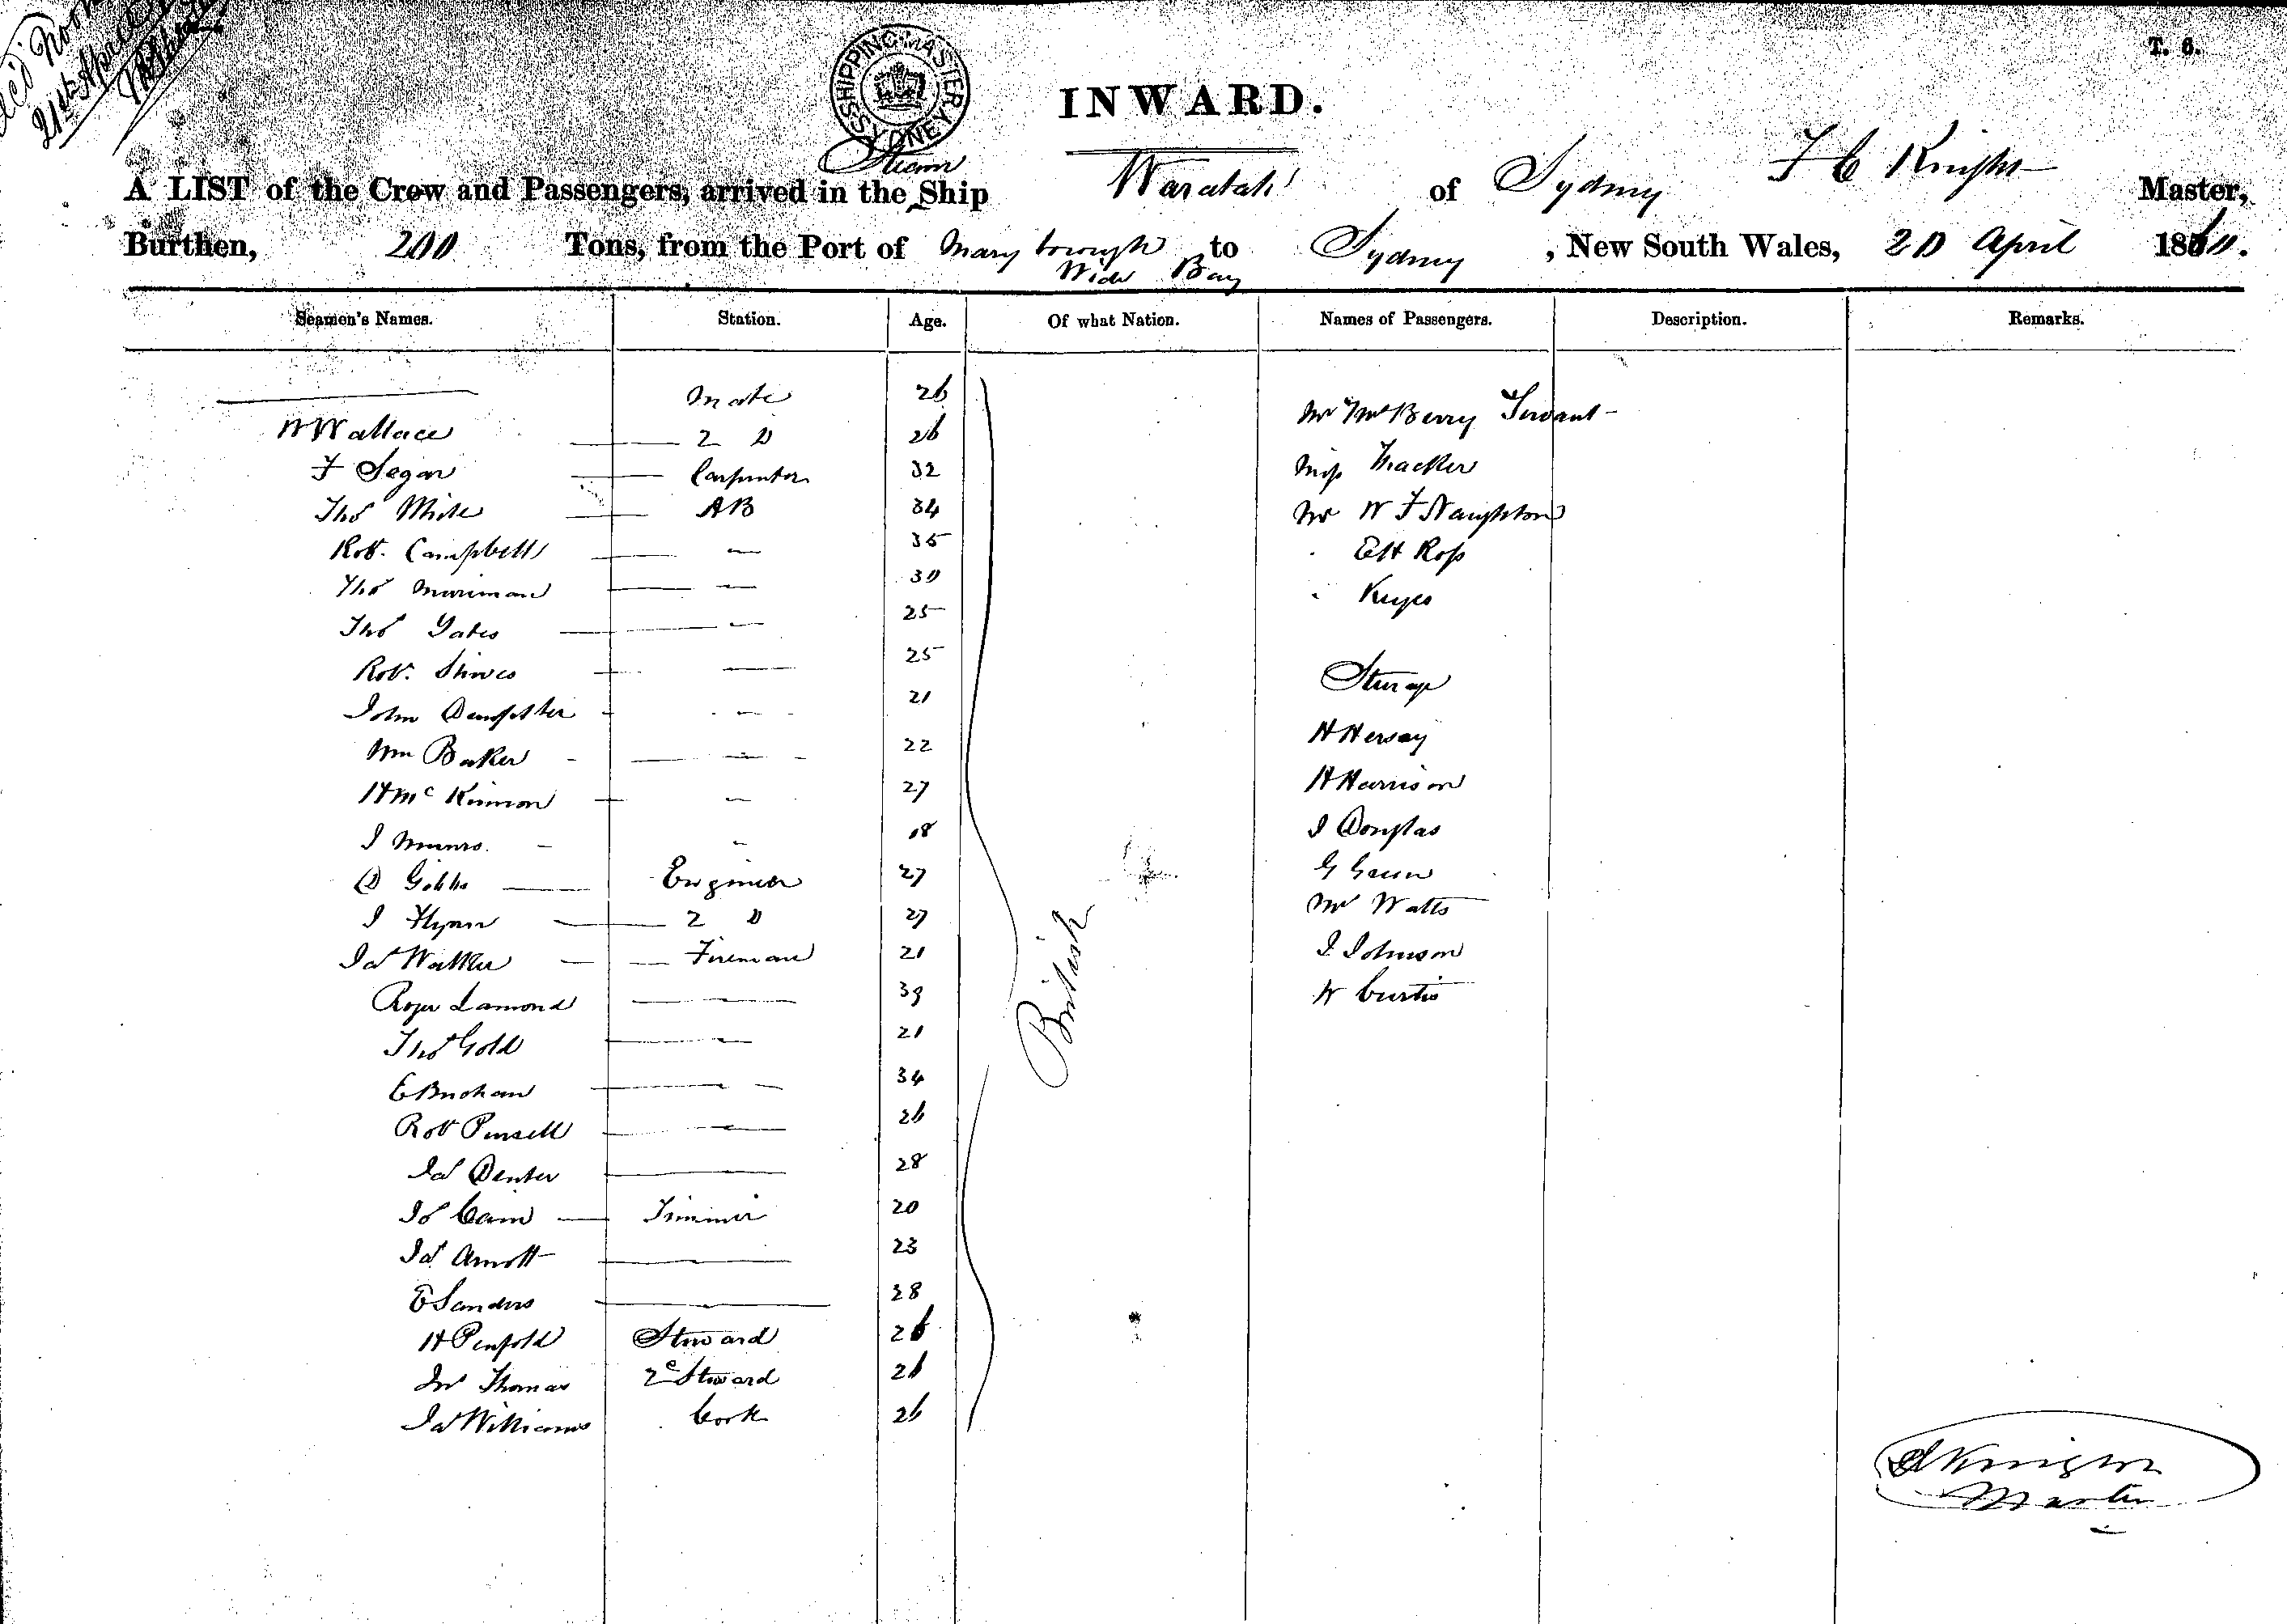 21st April
T. 6.
SHIPPING MASTER SYDNEY
INWARD.
Steam
A LIST of the Crew and Passengers, arrived in the Ship Waratah of Sydney F C Knight Master,
Burthen, 200 Tons, from the Port of Maryborough Wide Bay to Sydney, New South Wales, 20 April 1860.
Seamen's Names. Station. Age. Of what Nation. Names of Passengers. Description. Remarks.
Mate 26
W Wallace 2 D 26
F Segar Carpenter 32
Thos White AB 34
Robt. Campbell 35
Thos Merriman 30
Thos Yates 25
Robt. 25
John 21
Wm Baker 22
H Mc Kinnon 27
J Munro 18
D Gibbs Engineer 27
J Flynn 2 D 27
Jas Walker Fireman 21
Roger Lamond 39
Thos Gold 21
E Buchan 34
Robt Pursell 26
Jas Denter 28
Js Cain Trimmer 20
Jas Arnott 23
E Sanders 28
H Penfold Steward 26
Jno Thomas 2d Steward 26
Jas Williams Cook 26
British
Mr Berry Servant
Miss Thacker
Mr W F Naughton
" E H Ross
" Keyes
Steerage
H Hersey
H Harrison
J Douglas
G
Mr Watts
J Johnson
W Curtis
Knight
Master